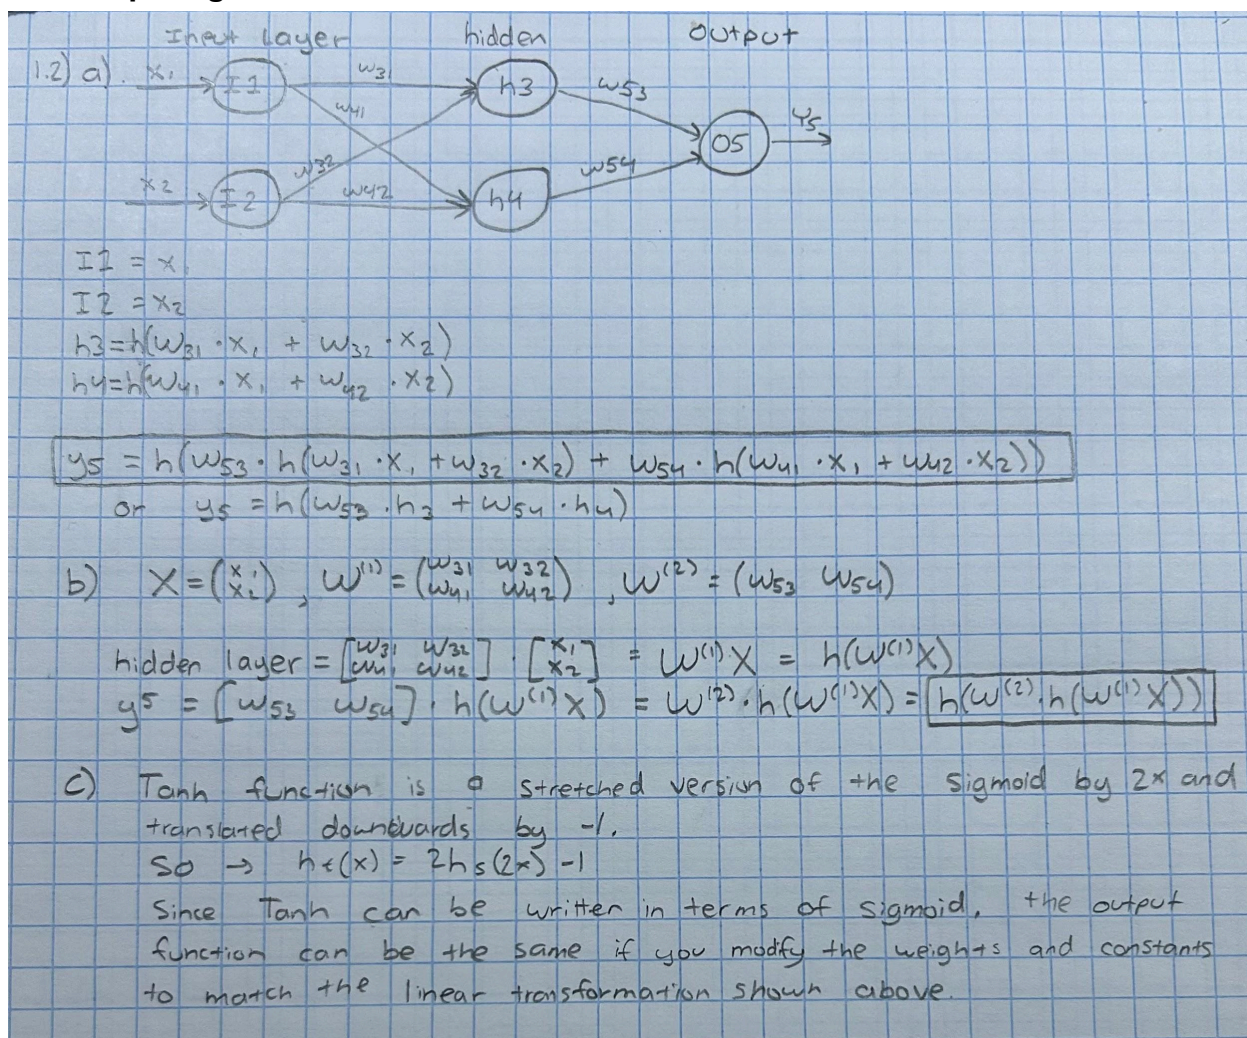 Input layer hidden output
1.2) a) x₁ I1 w31 h3 w53
w41 O5 y5
x2 I2 w32 w42 h4 w54
I1 = x₁
I2 = x₂
h3=h(w₃₁ · x₁ + w₃₂ · x₂)
h4=h(w₄₁ · x₁ + w₄₂ · x₂)
y5 = h(w₅₃ · h(w₃₁ · x₁ + w₃₂ · x₂) + w₅₄ · h(w₄₁ · x₁ + w₄₂ · x₂))
or y₅ = h(w₅₃ · h₃ + w₅₄ · h₄)
b) X = (x₁ x₂), W⁽¹⁾ = (w₃₁ w₃₂ w₄₁ w₄₂), W⁽²⁾ = (w₅₃ w₅₄)
hidden layer = [w₃₁ w₃₂ w₄₁ w₄₂] · [x₁ x₂] = W⁽¹⁾X = h(W⁽¹⁾X)
y5 = [w₅₃ w₅₄] · h(W⁽¹⁾X) = W⁽²⁾ · h(W⁽¹⁾X) = h(W⁽²⁾ · h(W⁽¹⁾X))
c) Tanh function is a stretched version of the sigmoid by 2x and
translated downwards by -1.
So → ht(x) = 2hs(2x) -1
Since Tanh can be written in terms of sigmoid, the output
function can be the same if you modify the weights and constants
to match the linear transformation shown above.